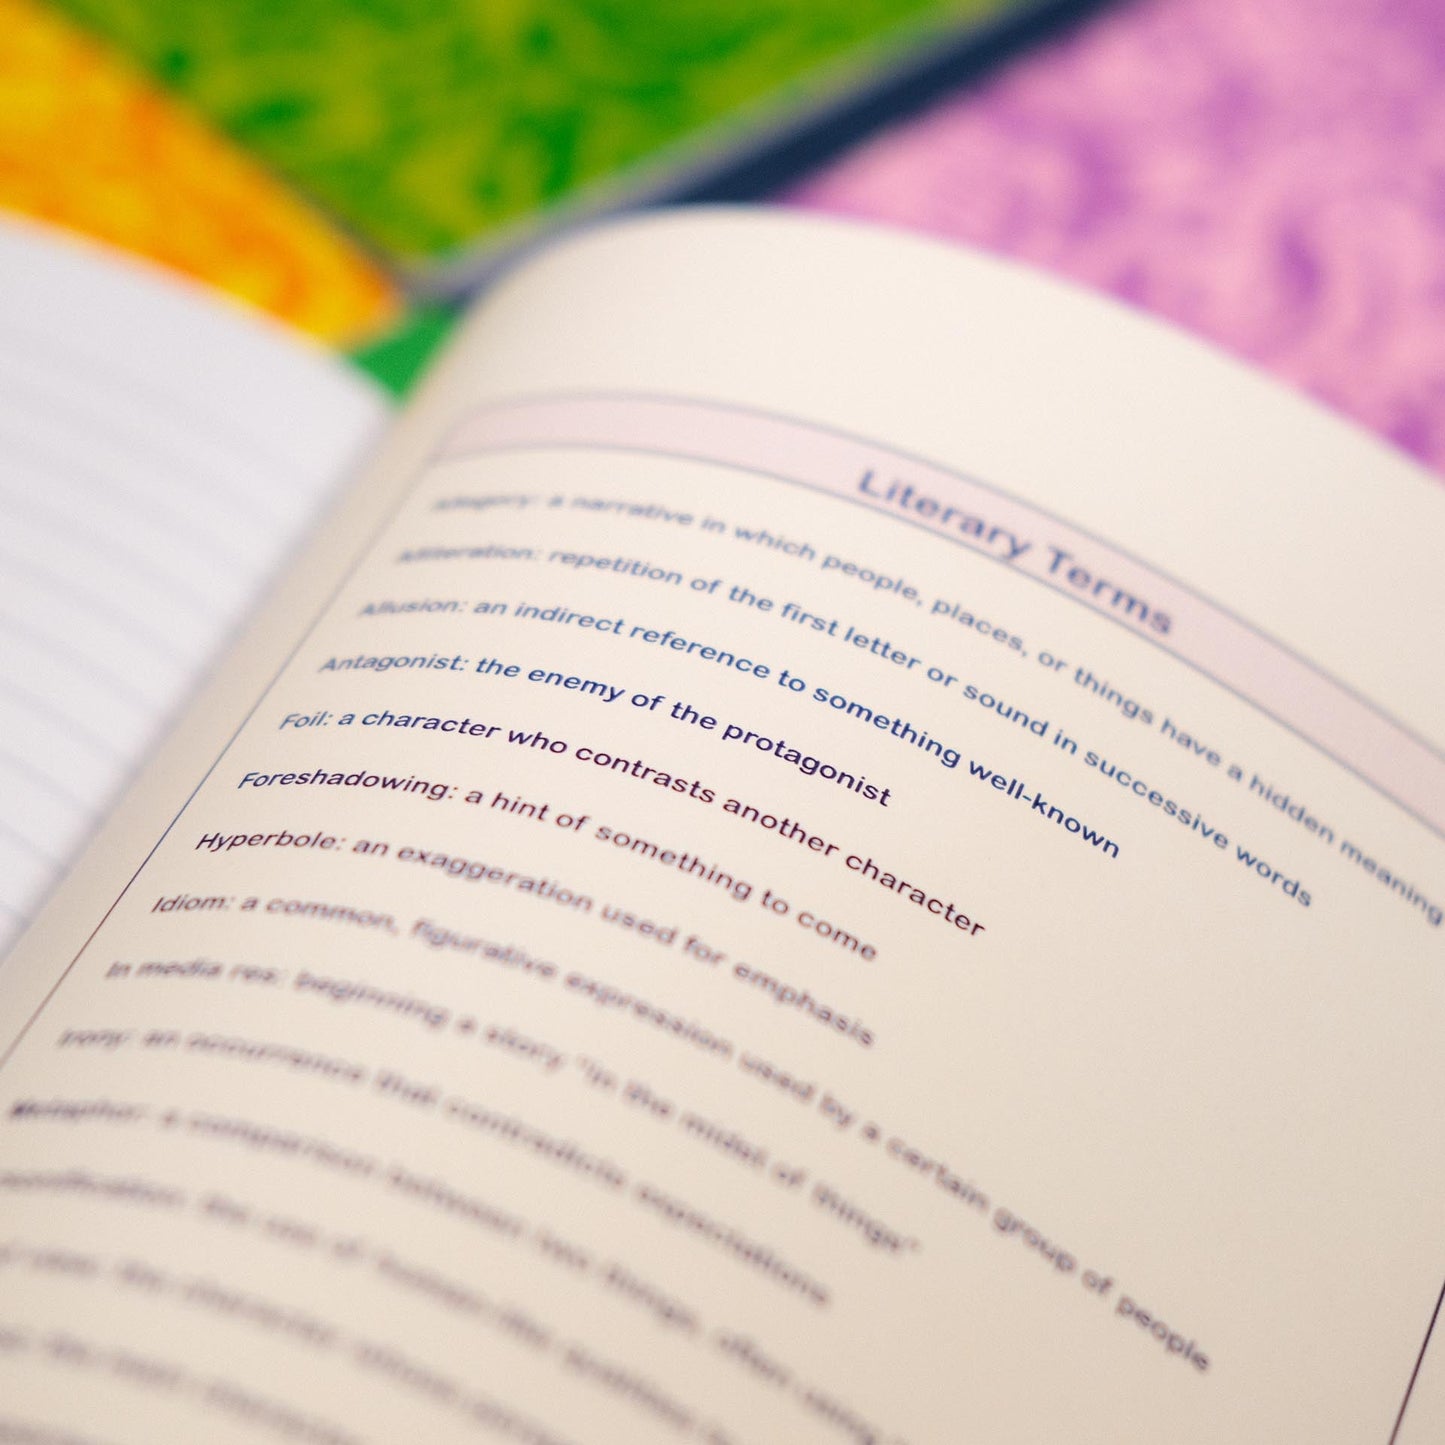 Literary Terms
Allegory: a narrative in which people, places, or things have a hidden meaning
Alliteration: repetition of the first letter or sound in successive words
Allusion: an indirect reference to something well-known
Antagonist: the enemy of the protagonist
Foil: a character who contrasts another character
Foreshadowing: a hint of something to come
Hyperbole: an exaggeration used for emphasis
Idiom: a common, figurative expression used by a certain group of people
In media res: beginning a story "in the midst of things"
Irony: an occurrence that contradicts expectations
Metaphor: a comparison between two things, often using
the use of human-like qualities